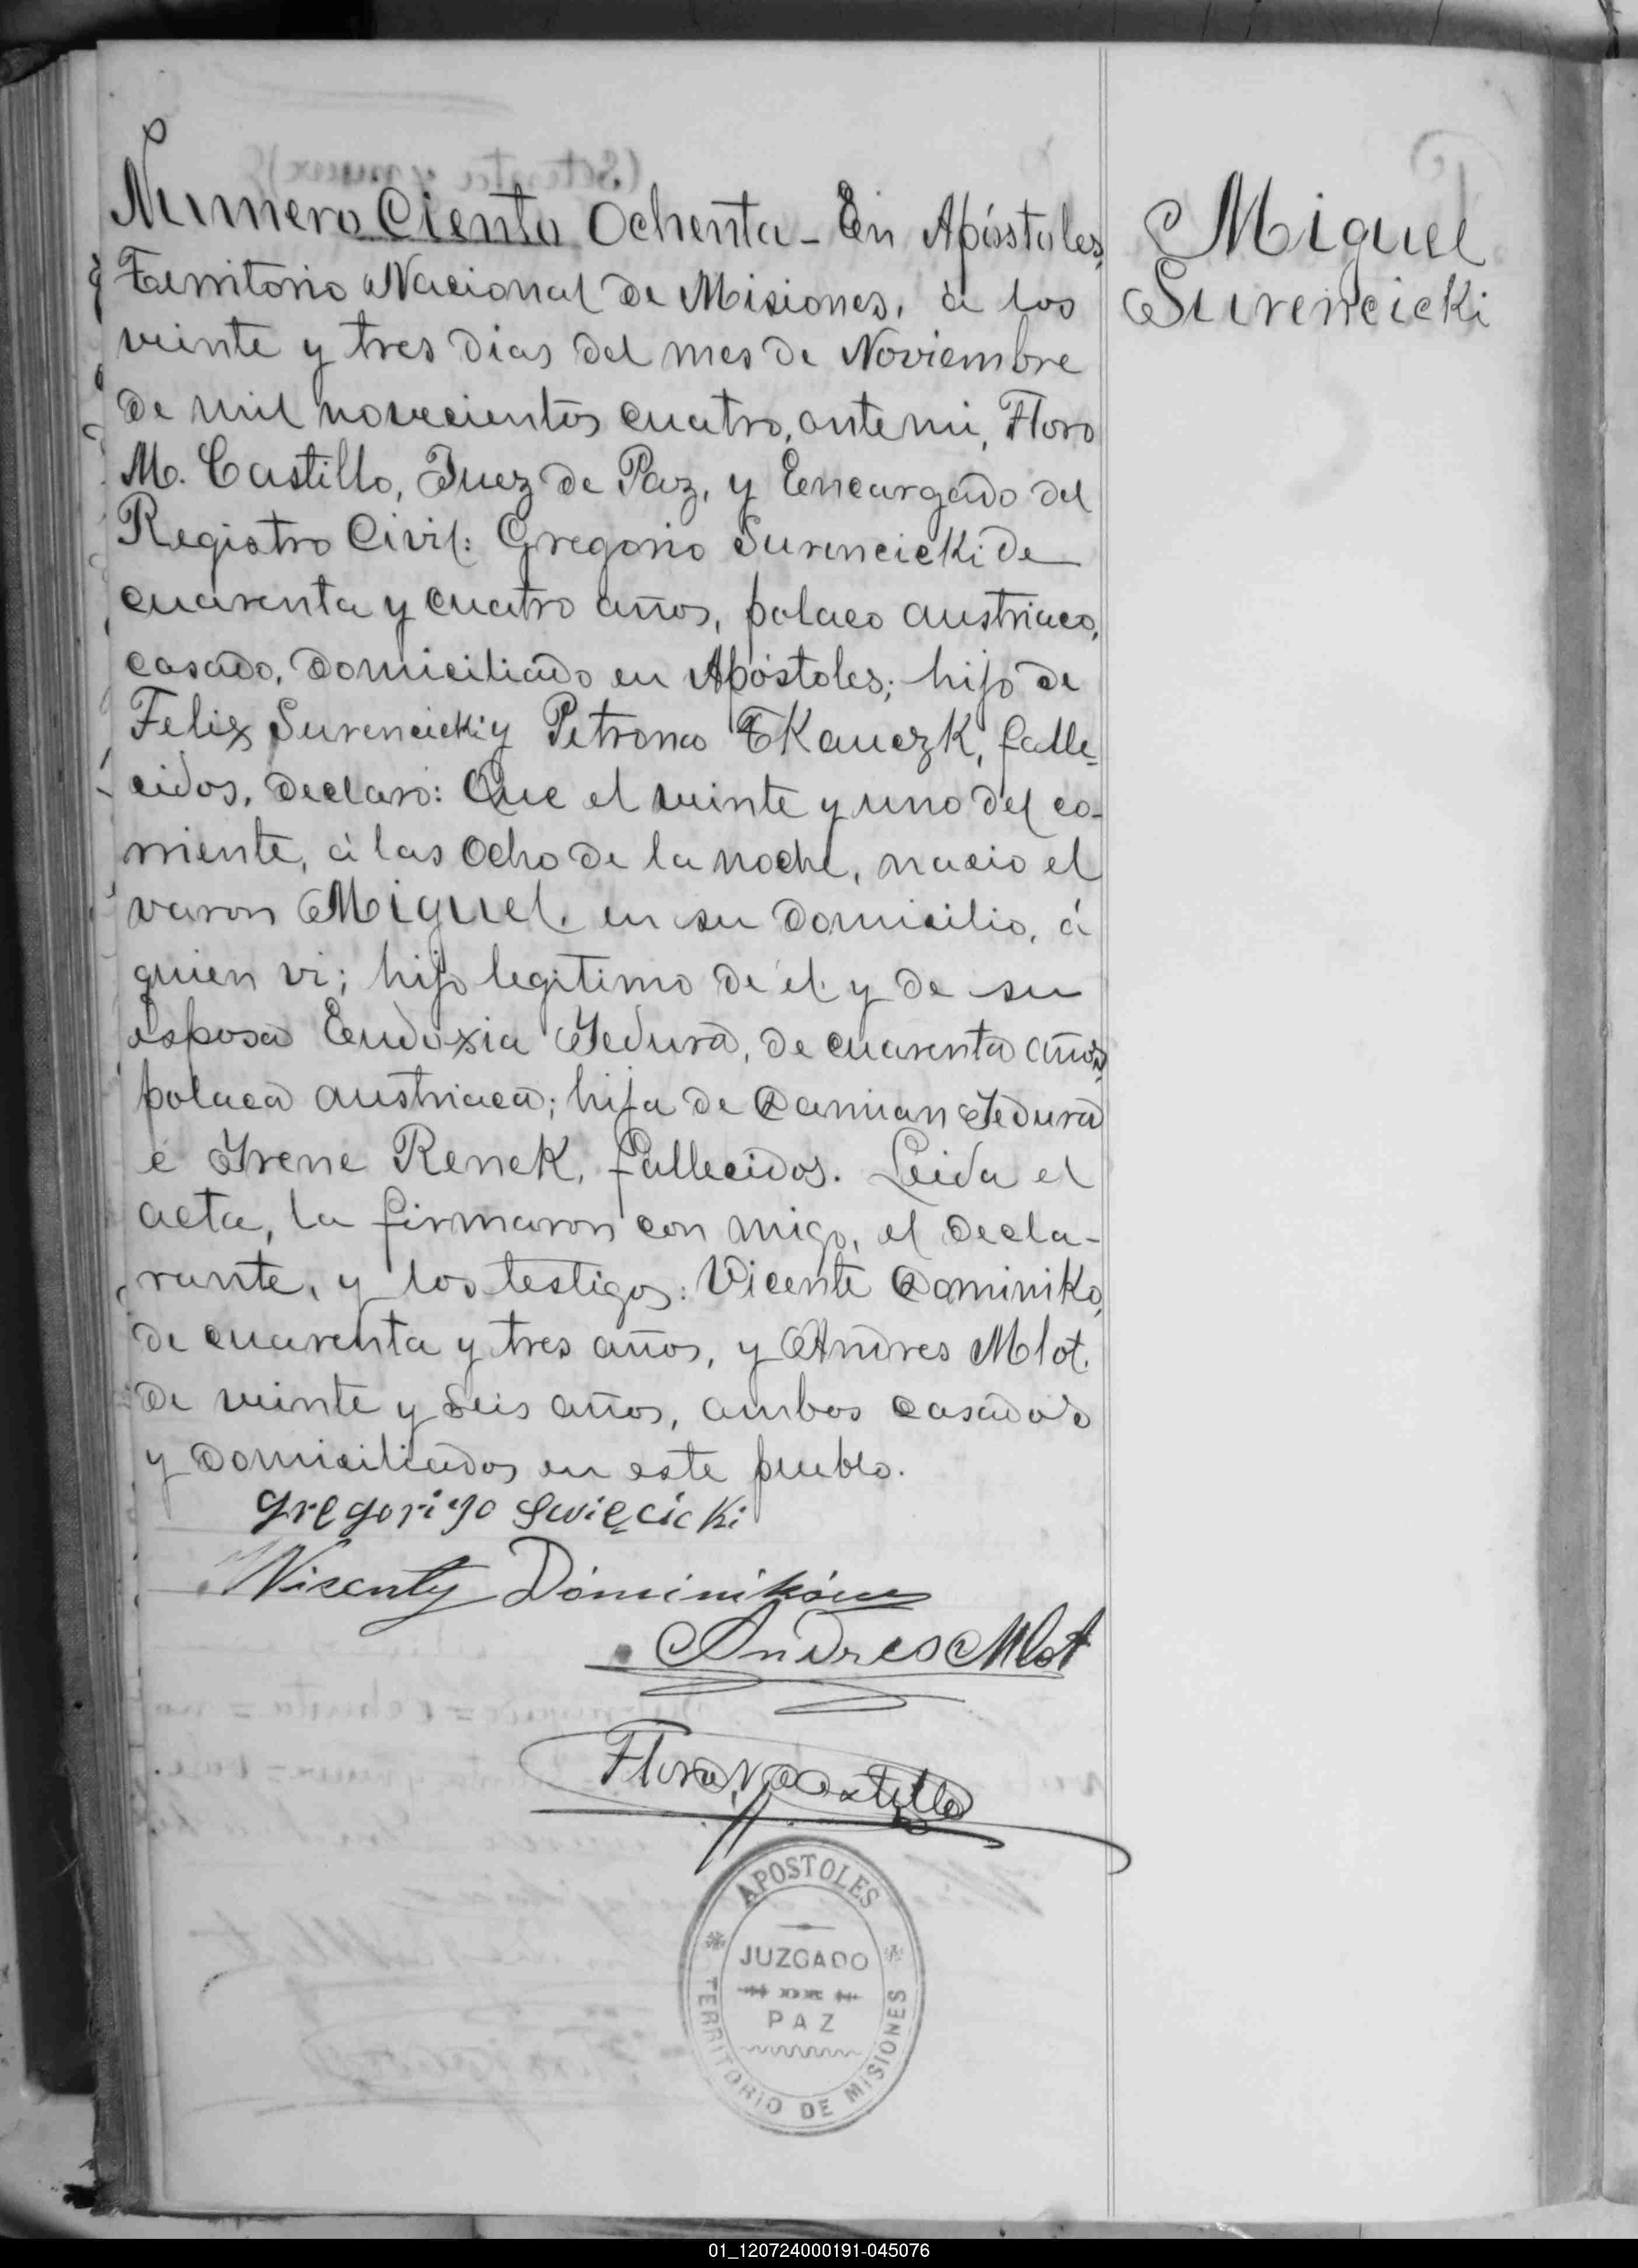 Numero Ciento Ochenta - En Apóstoles,
Territorio Nacional de Misiones, á los
veinte y tres dias del mes de Noviembre
de mil novecientos cuatro, ante mi, Floro
M. Castillo, Juez de Paz, y Encargado del
Registro Civil: Gregorio Surencicki de
cuarenta y cuatro años, polaco austriaco,
casado, domiciliado en Apóstoles; hijo de
Felix Surencicki y Petrona Tkauczk, falle-
cidos, declaro: Que el veinte y uno del co-
rriente, á las ocho de la noche, nacio el
varon Miguel, en su domicilio, á
quien vi; hijo legitimo de él y de su
esposa Eudoxia Jedura, de cuarenta años,
polaca austriaca; hija de Damian Jedura
é Irene Renek, fallecidos. Leida el
acta, la firmaron con migo, el decla-
rante, y los testigos: Vicente Dominiko,
de cuarenta y tres años, y Andres Mlot,
de veinte y seis años, ambos casados
y domiciliados en este pueblo.
Gregoriyo Swięcicki
Wicenty Dominików
Andres Mlot
Floro M Castillo
APOSTOLES
JUZGADO
DE
PAZ
TERRITORIO DE MISIONES
Miguel
Surencicki
01_120724000191-045076